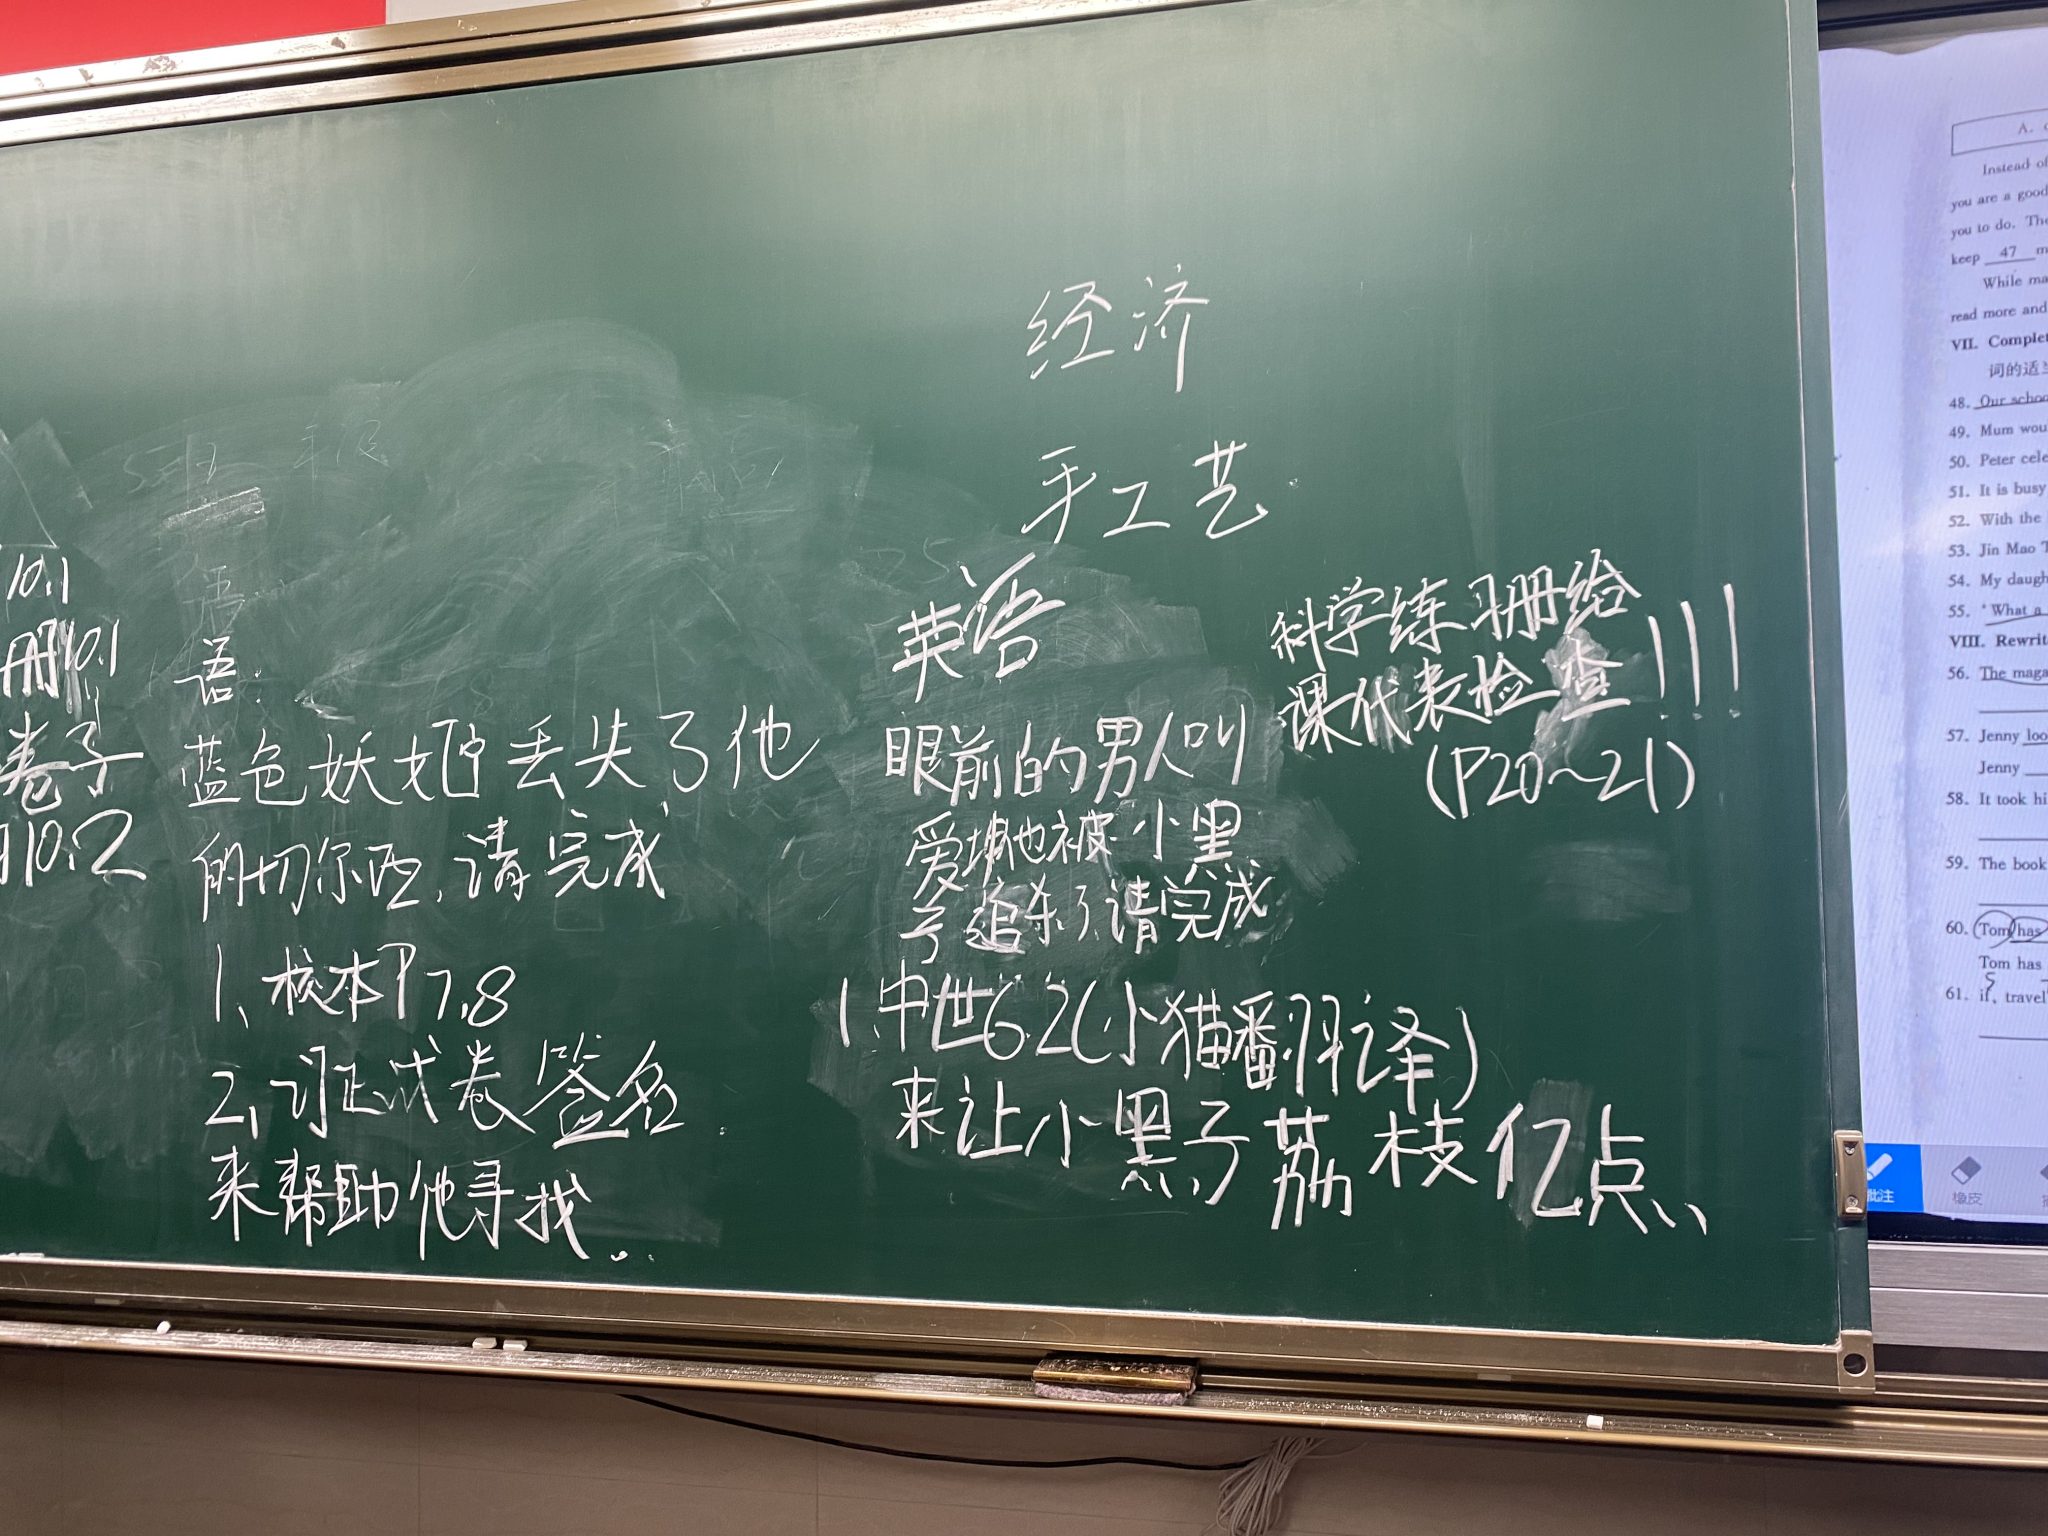 经济
手工艺
10.1
册10.1
卷子
10.2
语:
蓝色妖姬丢失了他
的切尔西,请完成
1、校本P7,8
2、订正试卷签名
来帮助他寻找...
英语
眼前的男人叫
爱坤他被小黑
子追杀了,请完成
1.中世6.2(小猫翻译)
来让小黑子荔枝亿点、、
科学练习册给
课代表检查!!!
(P20~21)
A.
Instead of
you are a good
you to do. The
keep 47 m
While ma
read more and
VII. Complet
词的适当
48. Our school
49. Mum wou
50. Peter cele
51. It is busy
52. With the
53. Jin Mao T
54. My daugh
55. "What a
VIII. Rewrit
56. The maga
57. Jenny loo
Jenny
58. It took hi
59. The book
60. Tom has
Tom has
61. if, travel
批注
橡皮